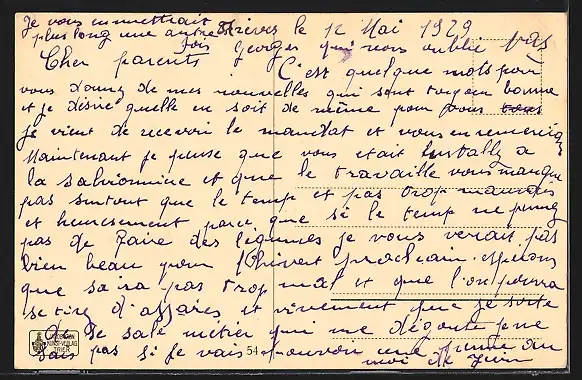 Je vous en mettrait
plus long une autre Trèves le 12 Mai 1929
fois Georges qui nous oublie pas
Cher parents
C'est quelque mots pour
vous donnez de mes nouvelles qui sont toujour bonne
et je désire quelle en soit de même pour vous tous
je vient de recevoir le mandat et vous en remerciez
Maintenant je pense que vous etait Instally a
la et que le travaille vous manque
pas surtout que le temp et pas trop mauvais
et heureusement parce que si le temp ne
pas de faire des légumes je vous verais pas
bien beau pour l'hivert prochain esperons
que sa ira pas trop mal et que l'on pourra
se tire d'affaires et vivement que je sorte
de se sale métier qui me dégoute je ne
sais pas si je vais pouvoir une perme au
moi de Juin
KUNST-VERLAG
TRIER
54